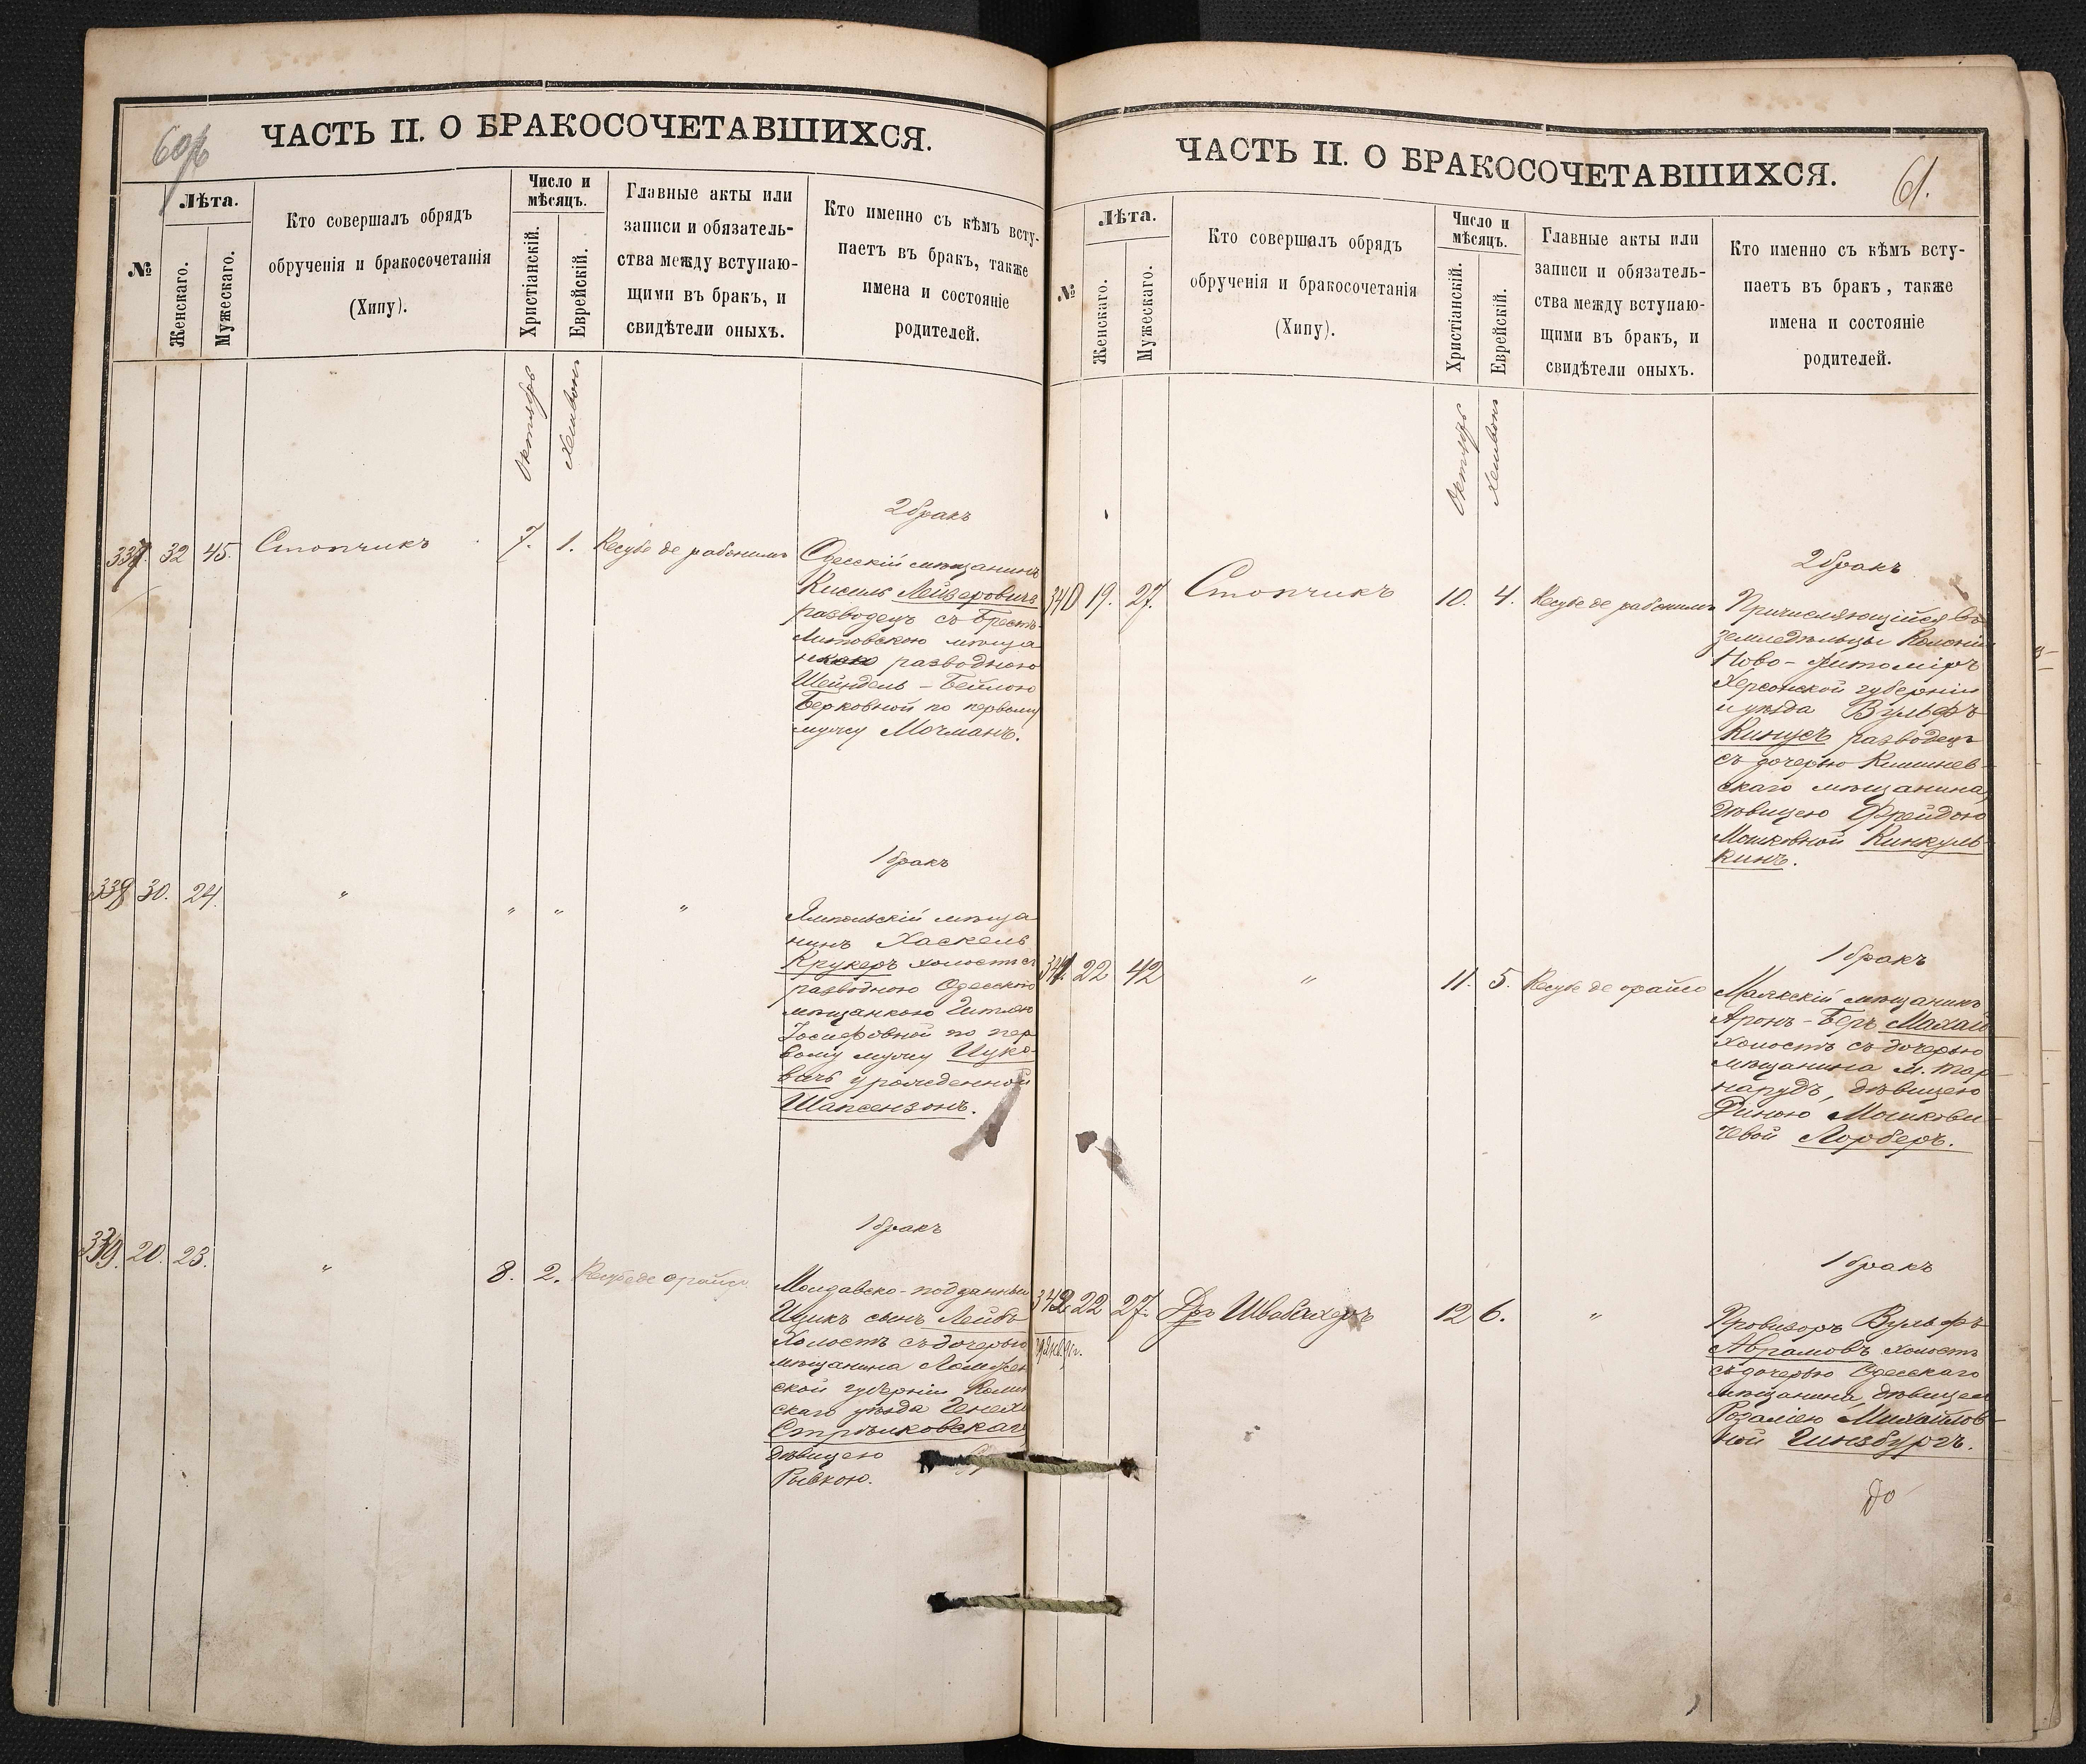 60 об
ЧАСТЬ II. О БРАКОСОЧЕТАВШИХСЯ.
№
Лѣта.
Женскаго.
Мужескаго.
Кто совершалъ обрядъ
обрученія и бракосочетанія
(Хипу).
Число и
мѣсяцъ.
Христіанскій.
Еврейскій.
Главные акты или
записи и обязатель-
ства между вступаю-
щими въ бракъ, и
свидѣтели оныхъ.
Кто именно съ кѣмъ всту-
паетъ въ бракъ, также
имена и состояніе
родителей.
Октябрь
Хешвонъ
2 бракъ
337. 32 45. Стопчикъ 7. 1. Кесубе де рабонимъ
Одесскій мѣщанинъ
Кисиль Лейзеровичъ
разводецъ съ Брестъ-
Литовскою мѣща
нкою разводною
Шейндель-Бейлою
Берковной по первому
мужу Мочманъ.
1 бракъ
338 30. 24. " " " "
Ямпольскій мѣща
нинъ Хаскель
Крукеръ холостъ съ
разводною Одесскою
мѣщанкою Гитлею
Іосифовной по пер
вому мужу Цуко-
вичъ урожденной
Шапсензонъ.
1 бракъ
339. 20. 23. " 8. 2. Кесубе де орайсо
Молдавско-подданный
Ицикъ сынъ Лейбъ
Холостъ съ дочерью
мѣщанина Ломжен
ской губерніи
скаго уѣзда
Стрыковскаго
дѣвицею
Рывкою.
ЧАСТЬ II. О БРАКОСОЧЕТАВШИХСЯ.
61.
№
Лѣта.
Женскаго.
Мужескаго.
Кто совершалъ обрядъ
обрученія и бракосочетанія
(Хипу).
Число и
мѣсяцъ.
Христіанскій.
Еврейскій.
Главные акты или
записи и обязатель-
ства между вступаю-
щими въ бракъ, и
свидѣтели оныхъ.
Кто именно съ кѣмъ всту-
паетъ въ бракъ, также
имена и состояніе
родителей.
Октябрь
Хешвонъ
2 бракъ
340 19. 27. Стопчикъ 10. 4. Кесубе де рабонимъ
Причисляющійся въ
земледѣльцы Колоніи
Ново-Житоміръ
Херсонской губерніи
и уѣзда Вульфъ
Кинусъ разводецъ
съ дочерью Кишинев-
скаго мѣщанина,
дѣвицею Фрейдою
Мошковной Кинкуль-
кинъ.
1 бракъ
341. 22 42 " 11. 5. Кесубе де орайсо
Маякскій мѣщанинъ
Аронъ-Беръ Махай
Холостъ съ дочерью
мѣщанина м. Тар
нарудъ, дѣвицею
Диною Мошкови-
чевой Лорберъ.
1 бракъ
342 22 27. Др. Швабахеръ 12 6. "
Провизоръ Вульфъ
Абрамовъ холостъ
съ дочерью Одесскаго
мѣщанина, дѣвицею
Розаліею Михайлов-
ной Гинзбургъ.
До